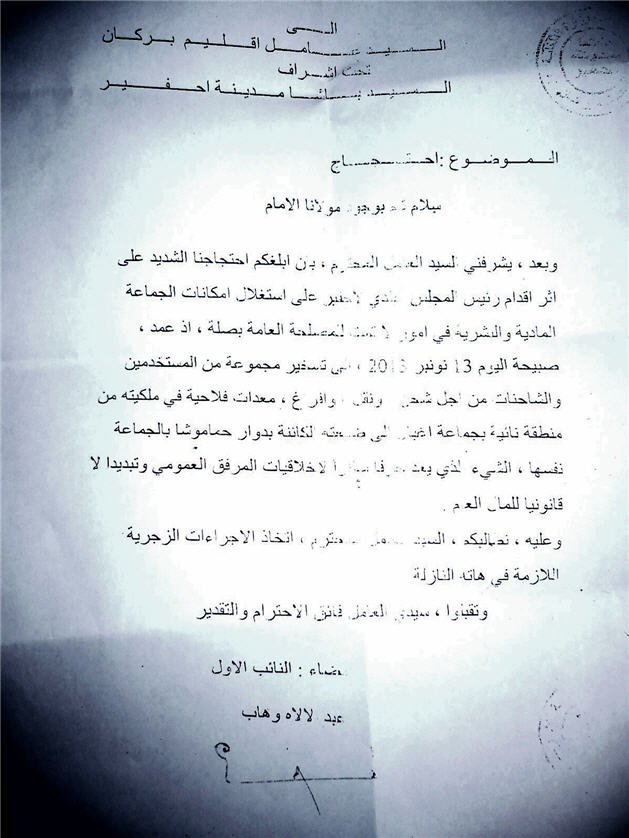 الى
السيد عامل اقليم بركان
تحت اشراف
السيد باشا مدينة احفير
الموضوع : احتجاج
سلام تام بوجود مولانا الامام
وبعد ، يشرفني السيد العامل المحترم ، بان ابلغكم احتجاجنا الشديد على
اثر اقدام رئيس المجلس البلدي لاحفير على استغلال امكانات الجماعة
المادية والبشرية في امور لا تمت للمصلحة العامة بصلة ، اذ عمد ،
صبيحة اليوم 13 نونبر 2013 ، الى تسخير مجموعة من المستخدمين
والشاحنات من اجل شحن ونقل وافراغ ، معدات فلاحية في ملكيته من
منطقة نائية بجماعة اغبال الى ضيعته الكائنة بدوار حماموشا بالجماعة
نفسها ، الشيء الذي يعد خرقا سافرا لاخلاقيات المرفق العمومي وتبديدا لا
قانونيا للمال العام .
وعليه ، نطالبكم ، السيد العامل المحترم ، اتخاذ الاجراءات الزجرية
اللازمة في هاته النازلة
وتقبلوا ، سيدي العامل فائق الاحترام والتقدير
امضاء : النائب الاول
عبد الالاه وهاب